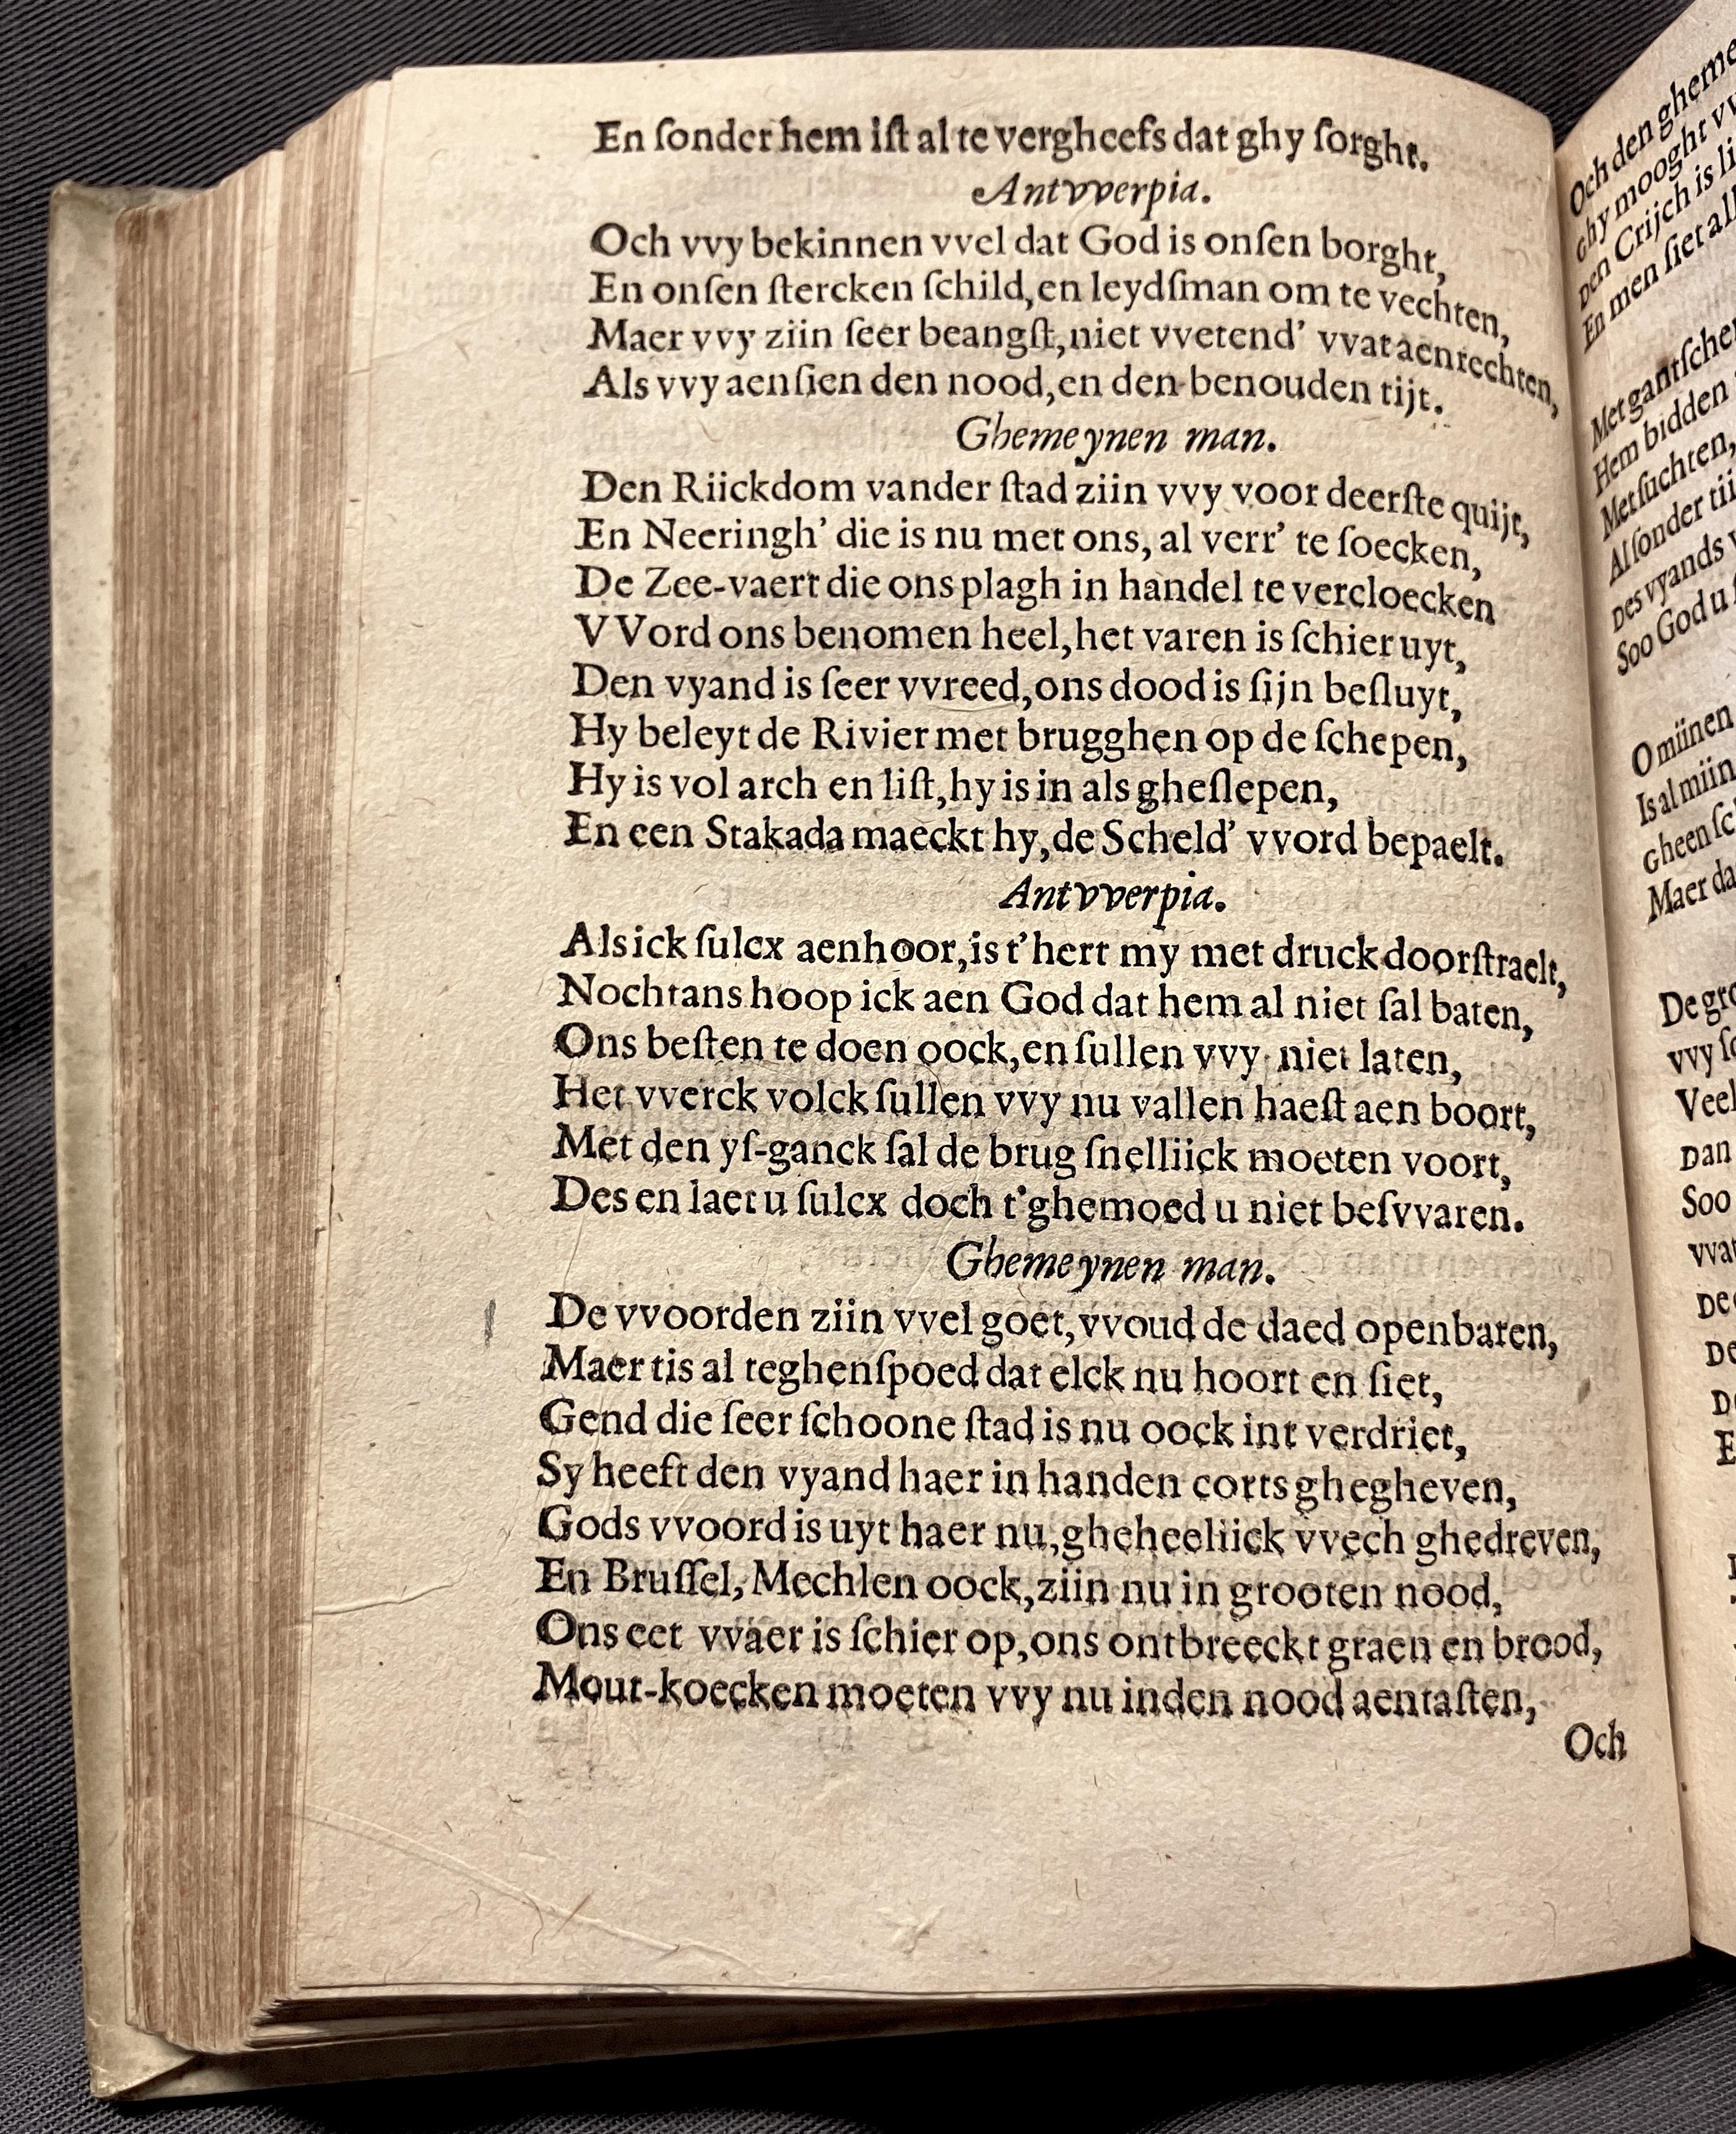 En ſonder hem iſt al te vergheefs dat ghy ſorght.
Antvverpia.
Och vvy bekinnen vvel dat God is onſen borght,
En onſen ſtercken ſchild, en leydſman om te vechten,
Maer vvy ziin ſeer beangſt, niet vvetend' vvat aenrechten,
Als vvy aenſien den nood, en den benouden tijt.
Ghemeynen man.
Den Riickdom vander ſtad ziin vvy voor deerſte quijt,
En Neeringh' die is nu met ons, al verr' te ſoecken,
De Zee-vaert die ons plagh in handel te vercloecken
VVord ons benomen heel, het varen is ſchier uyt,
Den vyand is ſeer vvreed, ons dood is ſijn beſluyt,
Hy beleyt de Rivier met brugghen op de ſchepen,
Hy is vol arch en liſt, hy is in als gheſlepen,
En een Stakada maeckt hy, de Scheld' vvord bepaelt.
Antvverpia.
Als ick ſulcx aenhoor, is t'hert my met druck doorſtraelt,
Nochtans hoop ick aen God dat hem al niet ſal baten,
Ons beſten te doen oock, en ſullen vvy niet laten,
Het vverck volck ſullen vvy nu vallen haeſt aen boort,
Met den yſ-ganck ſal de brug ſnelliick moeten voort,
Des en laet u ſulcx doch t'ghemoed u niet beſvvaren.
Ghemeynen man.
De vvoorden ziin vvel goet, vvoud de daed openbaren,
Maer tis al teghenſpoed dat elck nu hoort en ſiet,
Gend die ſeer ſchoone ſtad is nu oock int verdriet,
Sy heeft den vyand haer in handen corts ghegheven,
Gods vvoord is uyt haer nu, gheheeliick vvech ghedreven,
En Bruſſel, Mechlen oock, ziin nu in grooten nood,
Ons eet vvaer is ſchier op, ons ontbreeckt graen en brood,
Mout-koecken moeten vvy nu inden nood aentaſten,
Och
Och den gheme
ghy mooght vv
Den Crijch is li
En men ſiet al
Met gantſche
Hem bidden
Met ſuchten,
Al ſonder tii
Des vyands v
Soo God u
O miinen
Is al miin
Gheen ſc
Maer da
De gro
vvy ſo
Veel
Dan
Soo
vvat
De
De
D
E